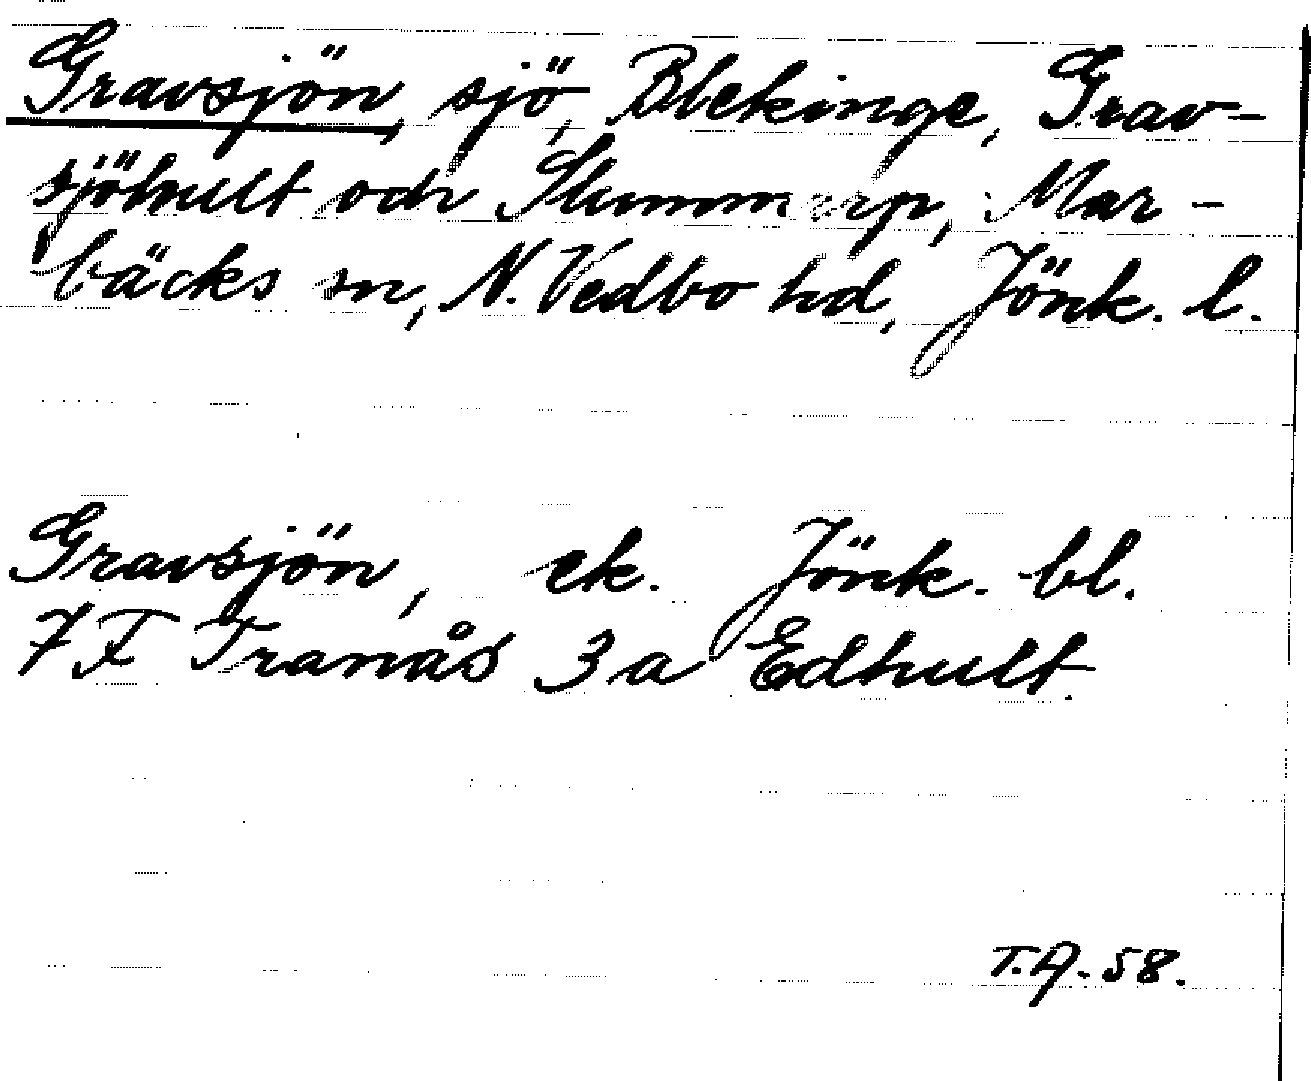 Gravsjön, sjö, Blekinge, Grav-
sjöhult och Slummarp, Mar-
bäcks sn, N. Vedbo hd, Jönk. l.
Gravsjön, ek. Jönk. bl.
7F Tranås 3a Edhult.
T.A. 58.